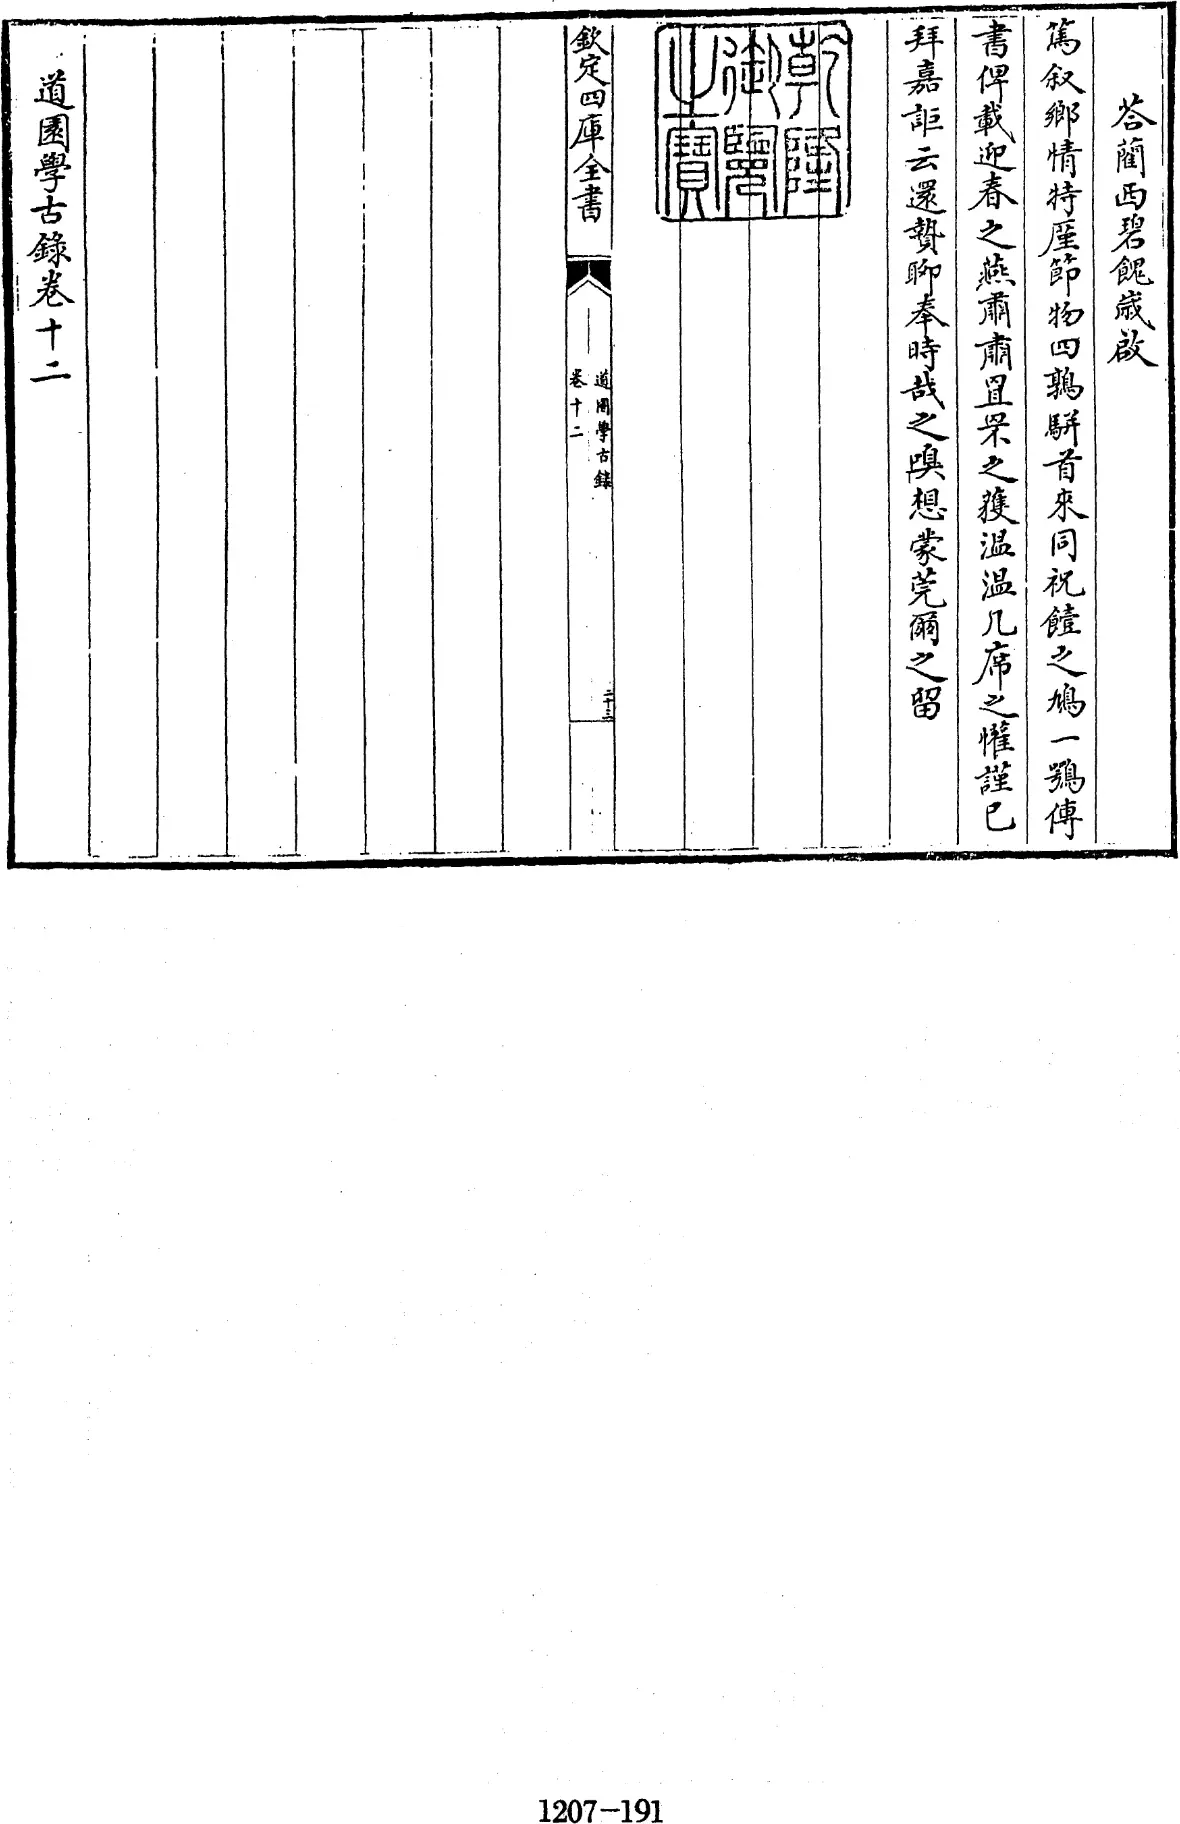 荅藺西碧餽歲啟
篤叙鄉情特厪節物四鶉駢首來同祝饐之鳩一鶚傳
書俾載迎春之燕肅肅罝罘之獲温温几席之懽謹已
拜嘉詎云還贄聊奉時哉之嗅想蒙莞爾之留
乾隆
御覽
之寶
欽定四庫全書
道園學古錄
卷十二
二十三
道園學古錄卷十二
1207-191